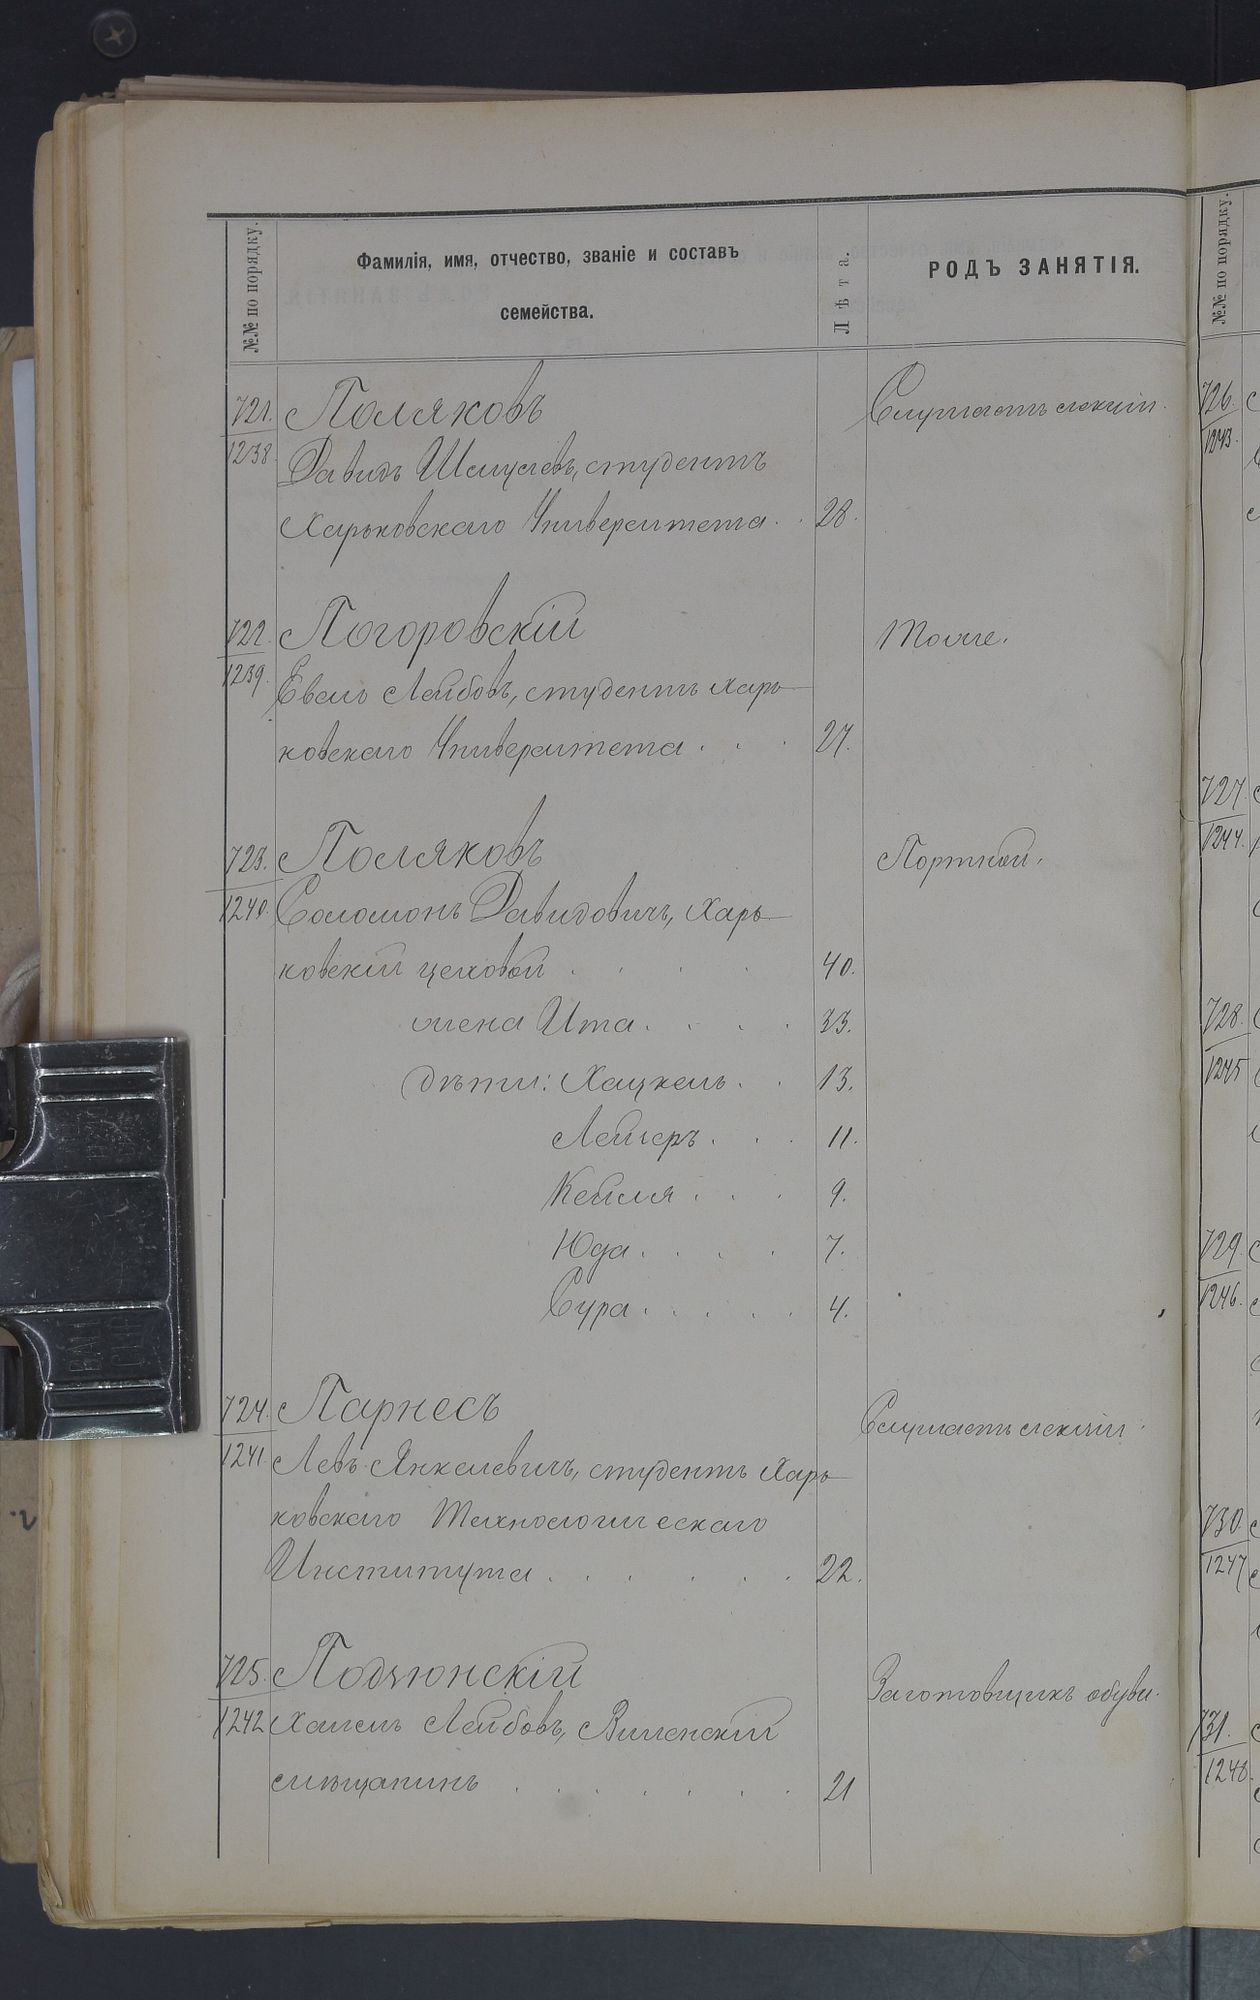 №№ по порядку.
Фамилія, имя, отчество, званіе и составъ
семейства.
Лѣта.
РОДЪ ЗАНЯТІЯ.
721. Поляковъ Слушаетъ лекціи.
1238. Давидъ Шмулевъ, студентъ
Харьковскаго Университета . . 28.
722. Погоровскій Тоже.
1239. Евель Лейбовъ, студентъ Харь-
ковскаго Университета . . . 27.
723. Поляковъ Портной.
1240. Соломонъ Давидовичъ, Харь-
ковскій цеховой . . . . 40.
жена Ита . . . . 33.
дѣти: Хацкель . . 13.
Лейзеръ . . . 11.
Кейля . . . 9.
Юда . . . . 7.
Сура . . . . . 4.
724. Парнесъ Слушаетъ лекціи.
1241. Левъ Янкелевичъ, студентъ Харь-
ковскаго Технологическаго
Института . . . . . . 22.
725. Подзюнскій Заготовщикъ обуви.
1242 Хаимъ Лейбовъ, Виленскій
мѣщанинъ . . . . . . 21
№№ по порядку.
726.
1243.
727.
1244.
728.
1245
729.
1246.
730.
1247
731.
1248.